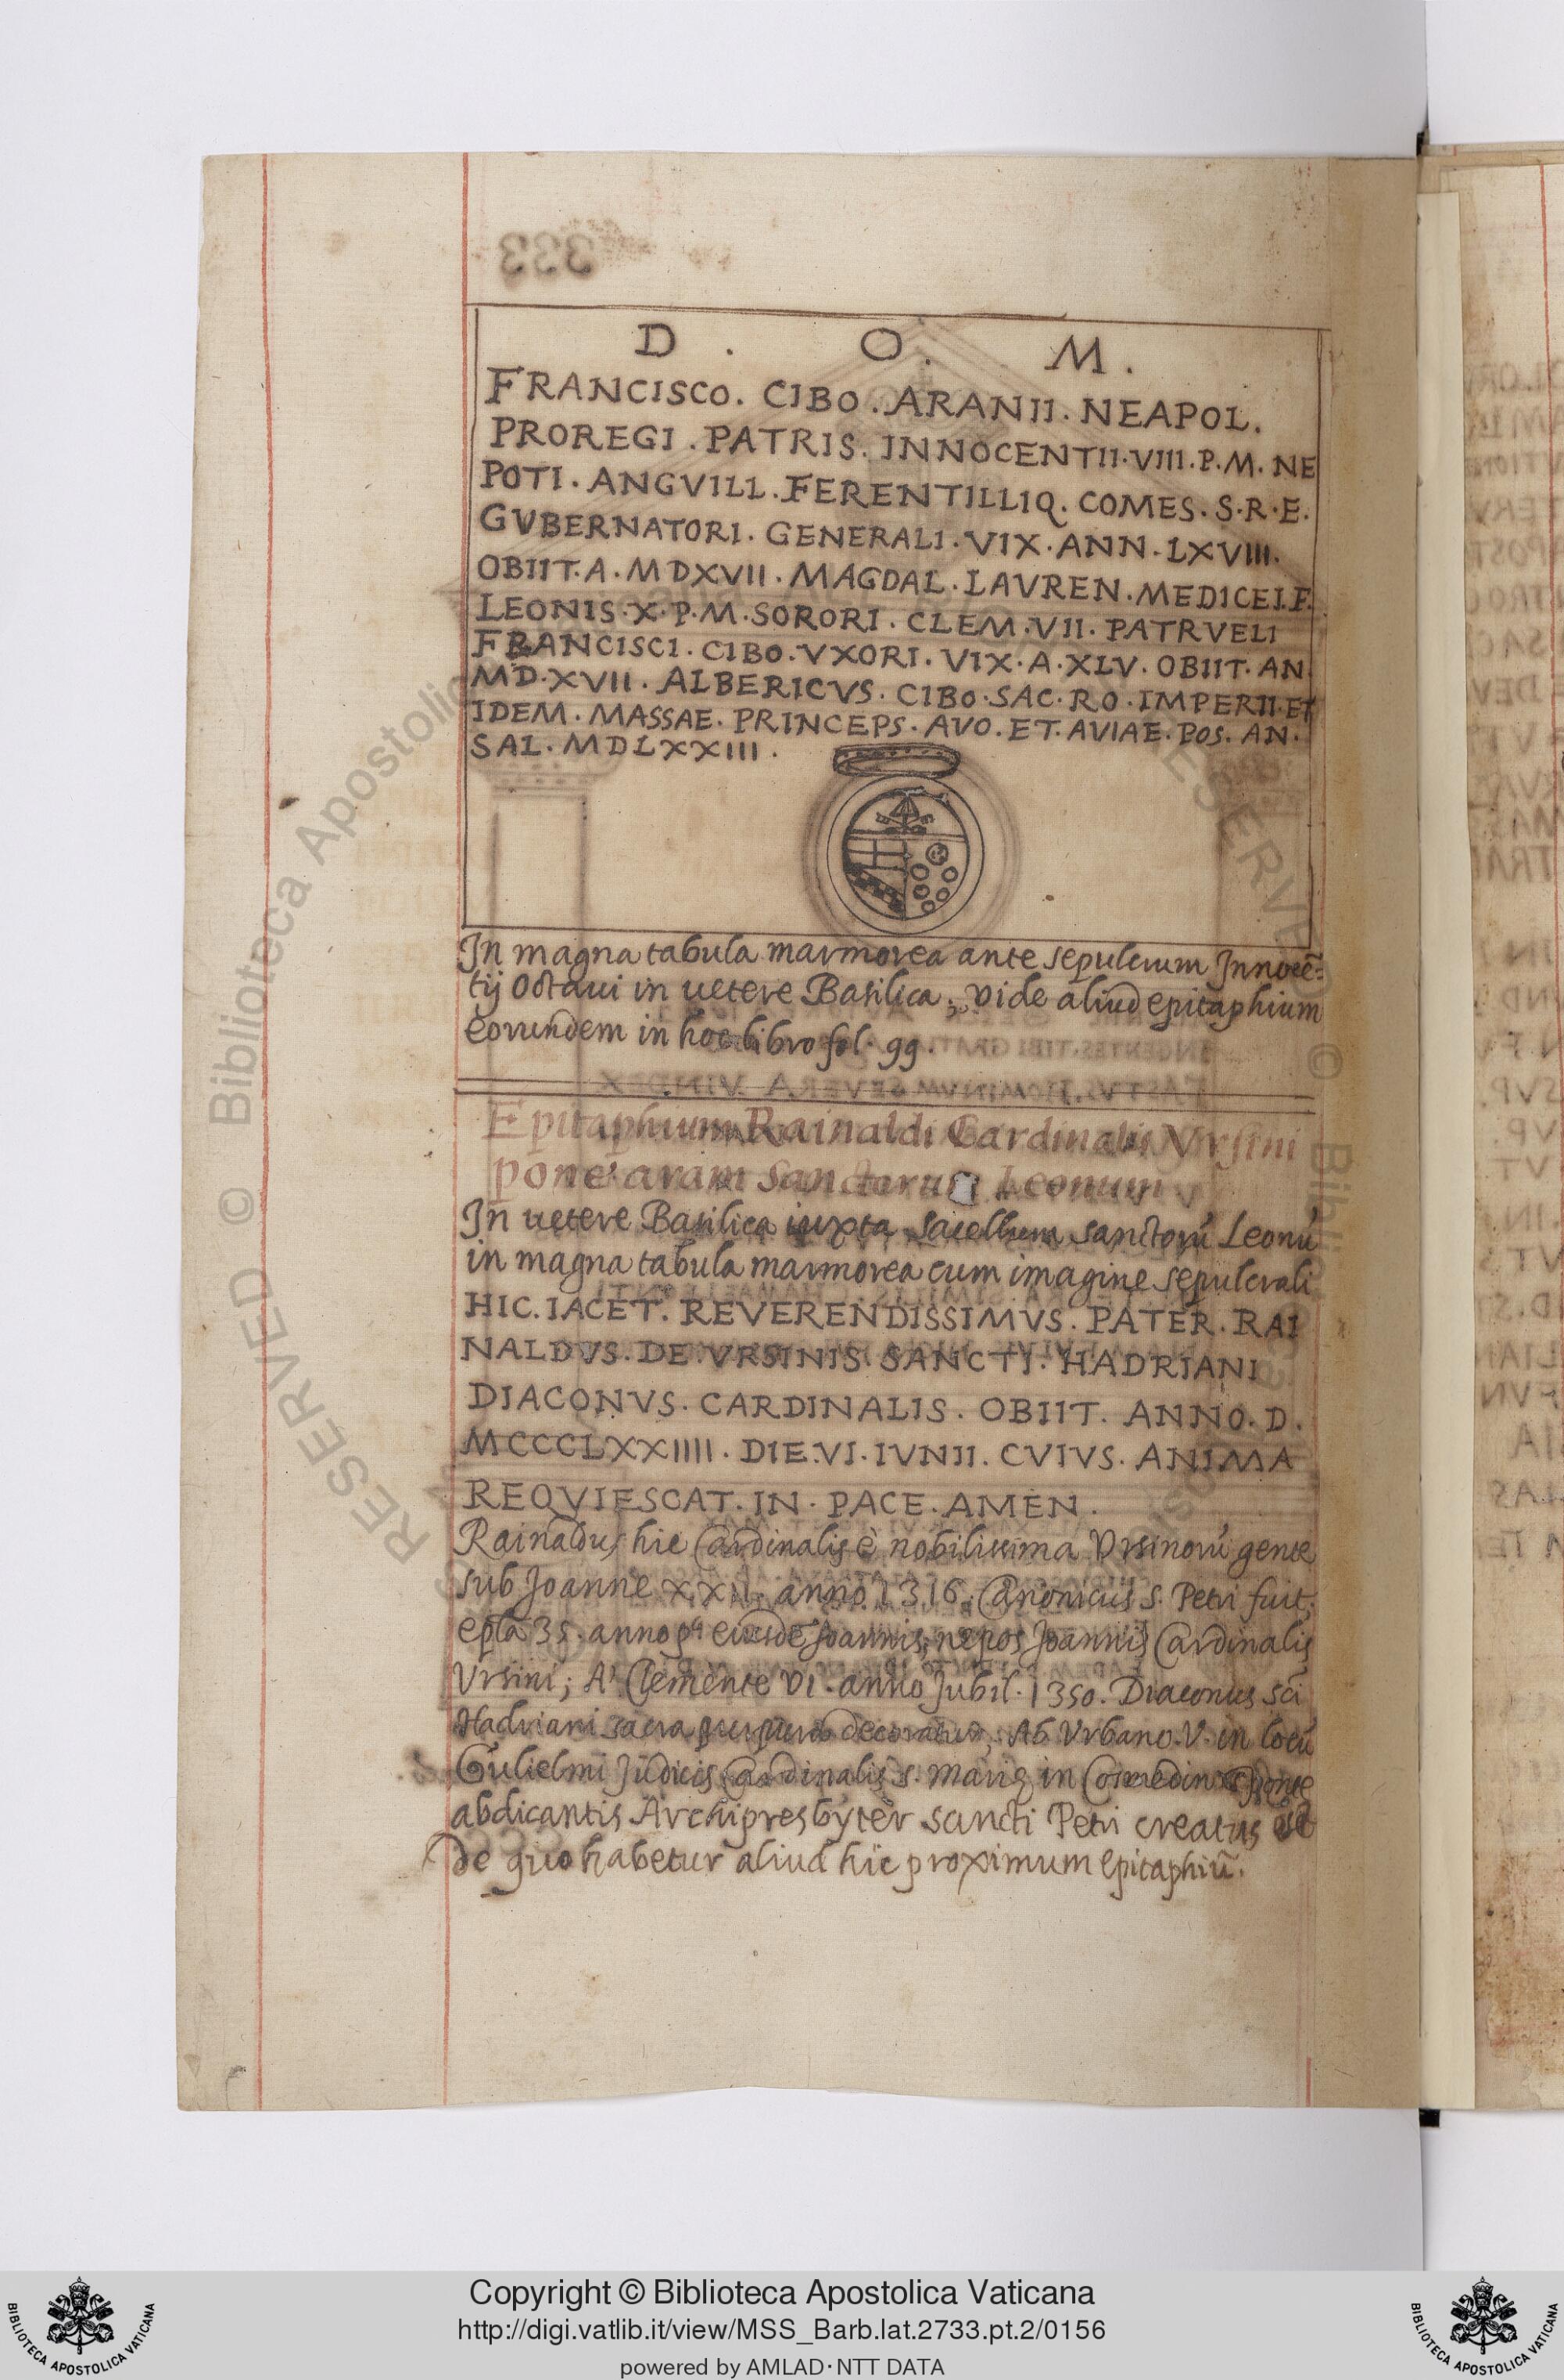 D . O . M .
FRANCISCO . CIBO . ARANII . NEAPOL .
PROREGI . PATRIS . INNOCENTII . VIII . P . M . NE
POTI . ANGVILL . FERENTILLIQ . COMES . S . R . E .
GVBERNATORI . GENERALI . VIX . ANN . LXVIII .
OBIIT . A . MDXVII . MAGDAL . LAVREN . MEDICEI . F .
LEONIS . X . P . M . SORORI . CLEM . VII . PATRVELI
FRANCISCI . CIBO . VXORI . VIX . A . XLV . OBIIT . AN
MD . XVII . ALBERICVS . CIBO . SAC . RO . IMPERII . ET
IDEM . MASSAE . PRINCEPS . AVO . ET . AVIAE . POS . AN .
SAL . MDLXXIII .
In magna tabula marmorea ante sepulcrum Innocē=
tij Octaui in uetere Basilica; Vide aliud epitaphium
eorundem in hoc libro fol. 99.
Epitaphium Rainaldi Cardinalis Vrsini
pone aram Sanctorum Leonum
In uetere Basilica iuxta sacellum sanctorū Leonū
in magna tabula marmorea cum imagine sepulcrali
HIC . IACET . REVERENDISSIMVS . PATER . RAI
NALDVS . DE . VRSINIS . SANCTI . HADRIANI
DIACONVS . CARDINALIS . OBIIT . ANNO . D .
MCCCLXXIIII . DIE . VI . IVNII . CVIVS . ANIMA
REQVIESCAT . IN . PACE . AMEN .
Rainaldus hic Cardinalis è nobilissima Vrsinorū gente
sub Joanne XXII. anno 1316. Canonicus S. Petri fuit;
epla 35. anno eiusdē Joannis, nepos Joannis Cardinalis
Vrsini; A Clemente VI. anno Jubil. 1350. Diaconus Sci
Hadriani sacra purpura decoratus, Ab Vrbano. V. in locū
Gulielmi Judicis Cardinalis S. Marię in Cosmedin sponte
abdicantis Archipresbyter Sancti Petri creatus est
de quo habetur aliud hic proximum epitaphiū.
Copyright © Biblioteca Apostolica Vaticana
http://digi.vatlib.it/view/MSS_Barb.lat.2733.pt.2/0156
powered by AMLAD·NTT DATA
BIBLIOTECA APOSTOLICA VATICANA
BIBLIOTECA APOSTOLICA VATICANA